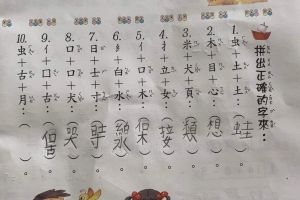 拼出正確的字來：
1. 虫＋土＋土：（蛙）
2. 木＋目＋心：（想）
3. 米＋犬＋頁：（類）
4. 扌＋立＋女：（接）
5. 亻＋口＋木：（保）
6. 糹＋白＋水：（線）
7. 日＋士＋寸：（時）
8. 口＋口＋犬：（哭）
9. 亻＋囗＋古：（個）
10. 虫＋古＋月：（　）